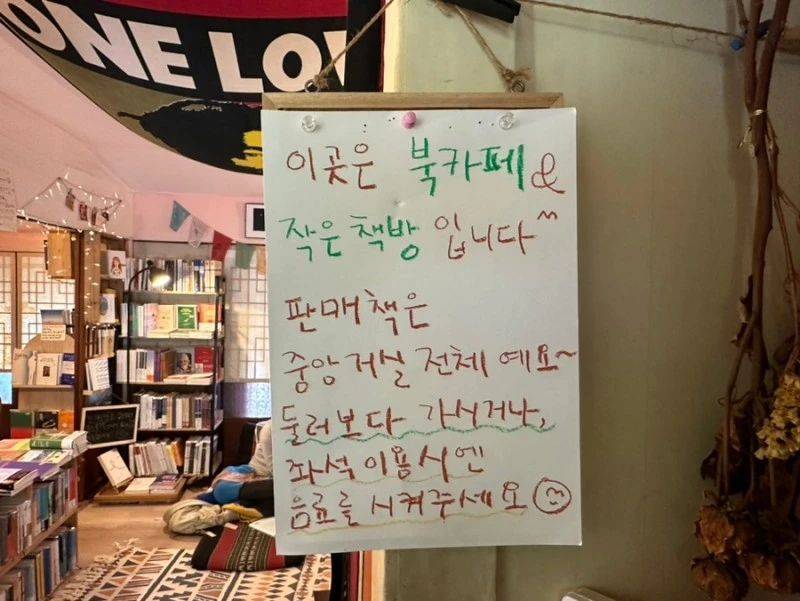 ONE LO
이곳은 북카페 &
작은 책방 입니다^^
판매책은
중앙 거실 전체 예요~
둘러보다 가시거나,
좌석 이용시엔
음료를 시켜주세요